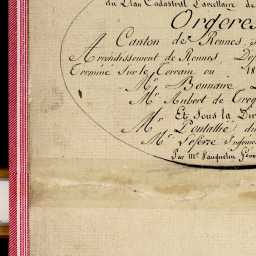 du Plan Cadastral Parcellaire de
Orgeres
Canton de Rennes
Arrondissement de Rennes Dep
Terminé sur le terrain ou 18
Mr Bonnaire
Mr Aubert de
Et Sous la Dir
Mr du
Mr Leferre
Par Mr Vauquelin Géom